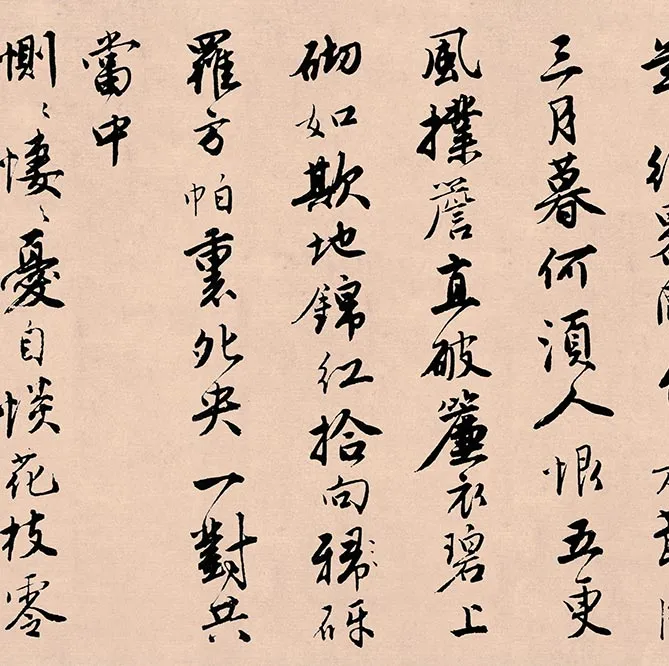 三月暮何須人恨五更
風撲簷直破簾衣碧上
砌如欺地錦紅拾向砑
羅方帕裹夗央一對共
當中
惻〻悽〻憂自惔花枝零